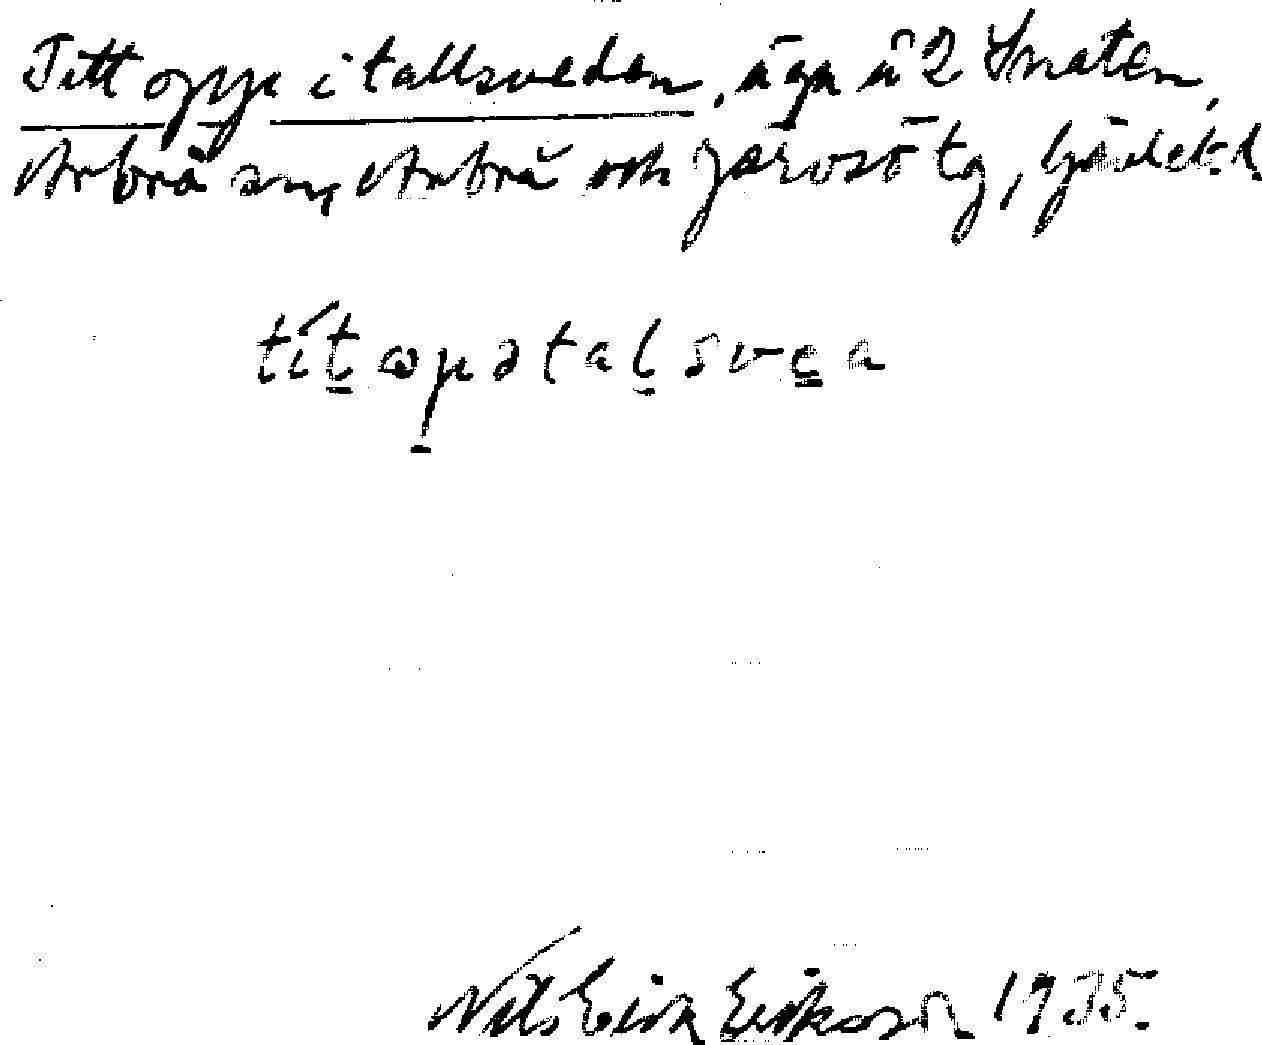 Titt oppe i tallsveden, äga å 2 Snaten,
Arbrå sn, Arbrå och Järvsö tg,
títo̱pətaḷsvea
Nils Erik Eriksson 1935.